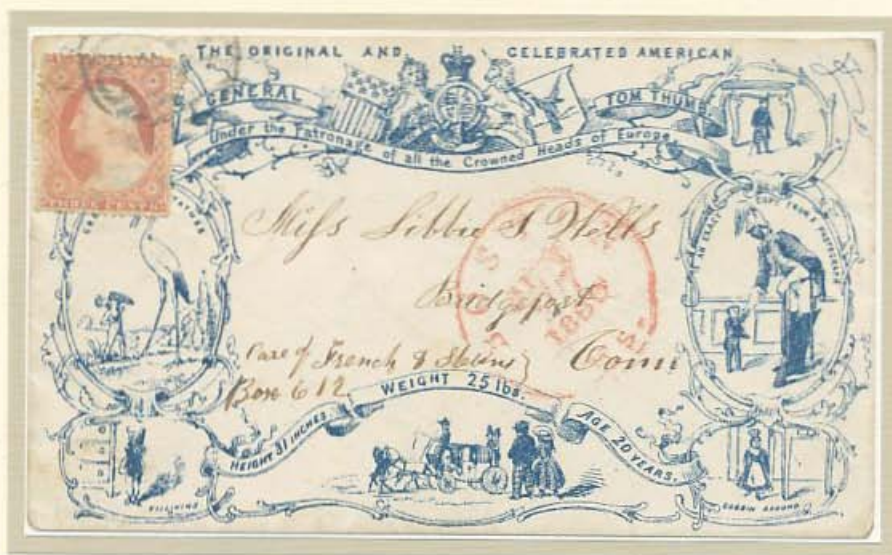 THE ORIGINAL AND CELEBRATED AMERICAN
GENERAL TOM THUMB
Under the Patronage of all the Crowned Heads of Europe
THREE CENTS
Miss Libbie S Wells
Bridgeport
Conn
Care of French &
Box 612
1860
HEIGHT 31 INCHES. WEIGHT 25 lbs. AGE 20 YEARS.